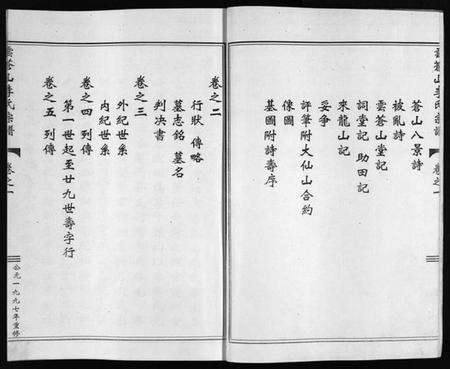 雲蒼山李氏宗譜
卷之一
蒼山八景詩
被亂詩
雲蒼山堂記
祠堂記 助田記
來龍山記
妥爭
評筆附大仙山合約
像圖
墓圖附詩壽序
卷之二
行狀 傳略
墓志銘 墓名
判决書
卷之三
外紀世系
內紀世系
卷之四 列傳
第一世起至廿九世壽字行
卷之五 列傳
雲蒼山李氏宗譜
卷之一
公元一九九七年重修